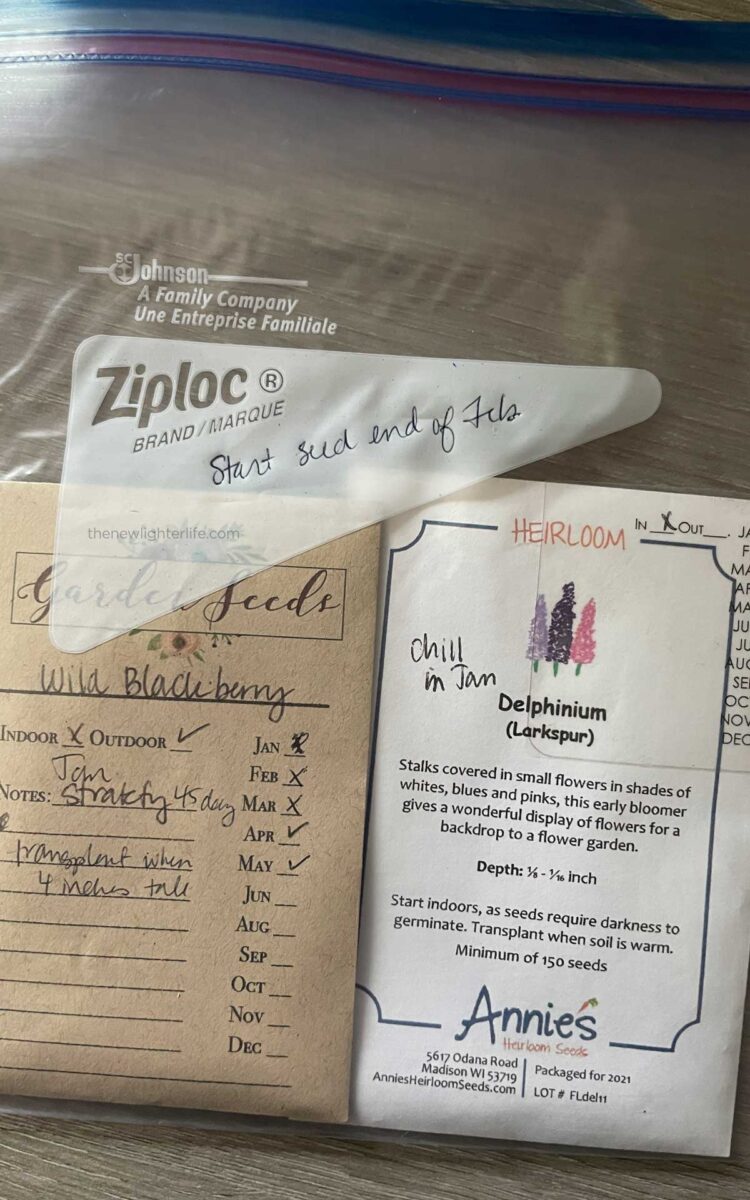 SC Johnson
A Family Company
Une Entreprise Familiale
Ziploc ®
BRAND/MARQUE
Start seed end of Feb
thenewlighterlife.com
Garden Seeds
Wild Blackberry
INDOOR X OUTDOOR ✓
JAN X
FEB X
MAR X
APR ✓
MAY ✓
JUN __
AUG __
SEP __
OCT __
NOV __
DEC __
Jan
NOTES: Stratify 45 day
transplant when
4 inches tall
HEIRLOOM
IN X OUT__.
JA
F
MA
AP
MA
JU
JU
AUG
SE
OC
NOV
DEC
Chill
in Jan
Delphinium
(Larkspur)
Stalks covered in small flowers in shades of
whites, blues and pinks, this early bloomer
gives a wonderful display of flowers for a
backdrop to a flower garden.
Depth: ⅛ - ¹⁄₁₆ inch
Start indoors, as seeds require darkness to
germinate. Transplant when soil is warm.
Minimum of 150 seeds
Annie's
Heirloom Seeds
5617 Odana Road
Madison WI 53719
AnniesHeirloomSeeds.com
Packaged for 2021
LOT # FLdel11